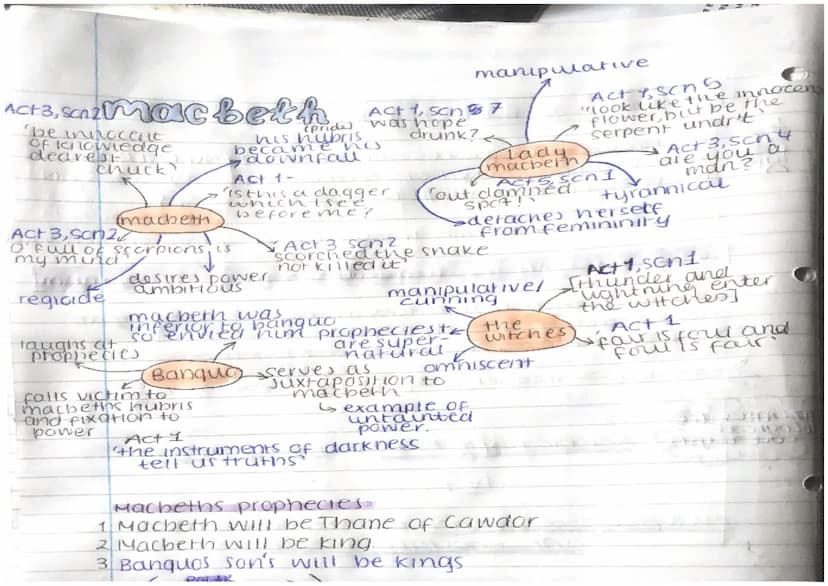 macbeth
Act 3, scn 2
'be innocent
of knowledge
dearest
chuck'
his hubris
(pride)
became his
downfall
Act 1-
'Is this a dagger
which I see
before me?
macbeth
Act 3, scn 2
O' full of scorpions is
my mind
Act 3 scn 2
scorched the snake
not killed it'
regicide
desires power
ambitious
manipulative
Act 1, scn 7
was hope
drunk?
Act 1, scn 5
"look like the innocent
flower, but be the
serpent undr't
lady
macbeth
Act 3, scn 4
are you a
man?
Act 5, scn 1
'out damned
spot!'
tyrannical
detaches herself
from femininity
macbeth was
inferior to banquo
so envied him
laughs at
prophecies
Banquo
serves as
juxtaposition to
macbeth
↳ example of
untainted
power.
falls victim to
macbeths hubris
and fixation to
power
Act 1
'the instruments of darkness
tell us truths'
manipulative/
cunning
Act 1, scn 1
[thunder and
lightning enter
the witches]
the
witches
prophecies
are super-
natural
Act 1
'fair is foul and
foul is fair'
omniscent
Macbeths prophecies
1 Macbeth will be Thane of Cawdor
2 Macbeth will be king
3 Banquos son's will be kings